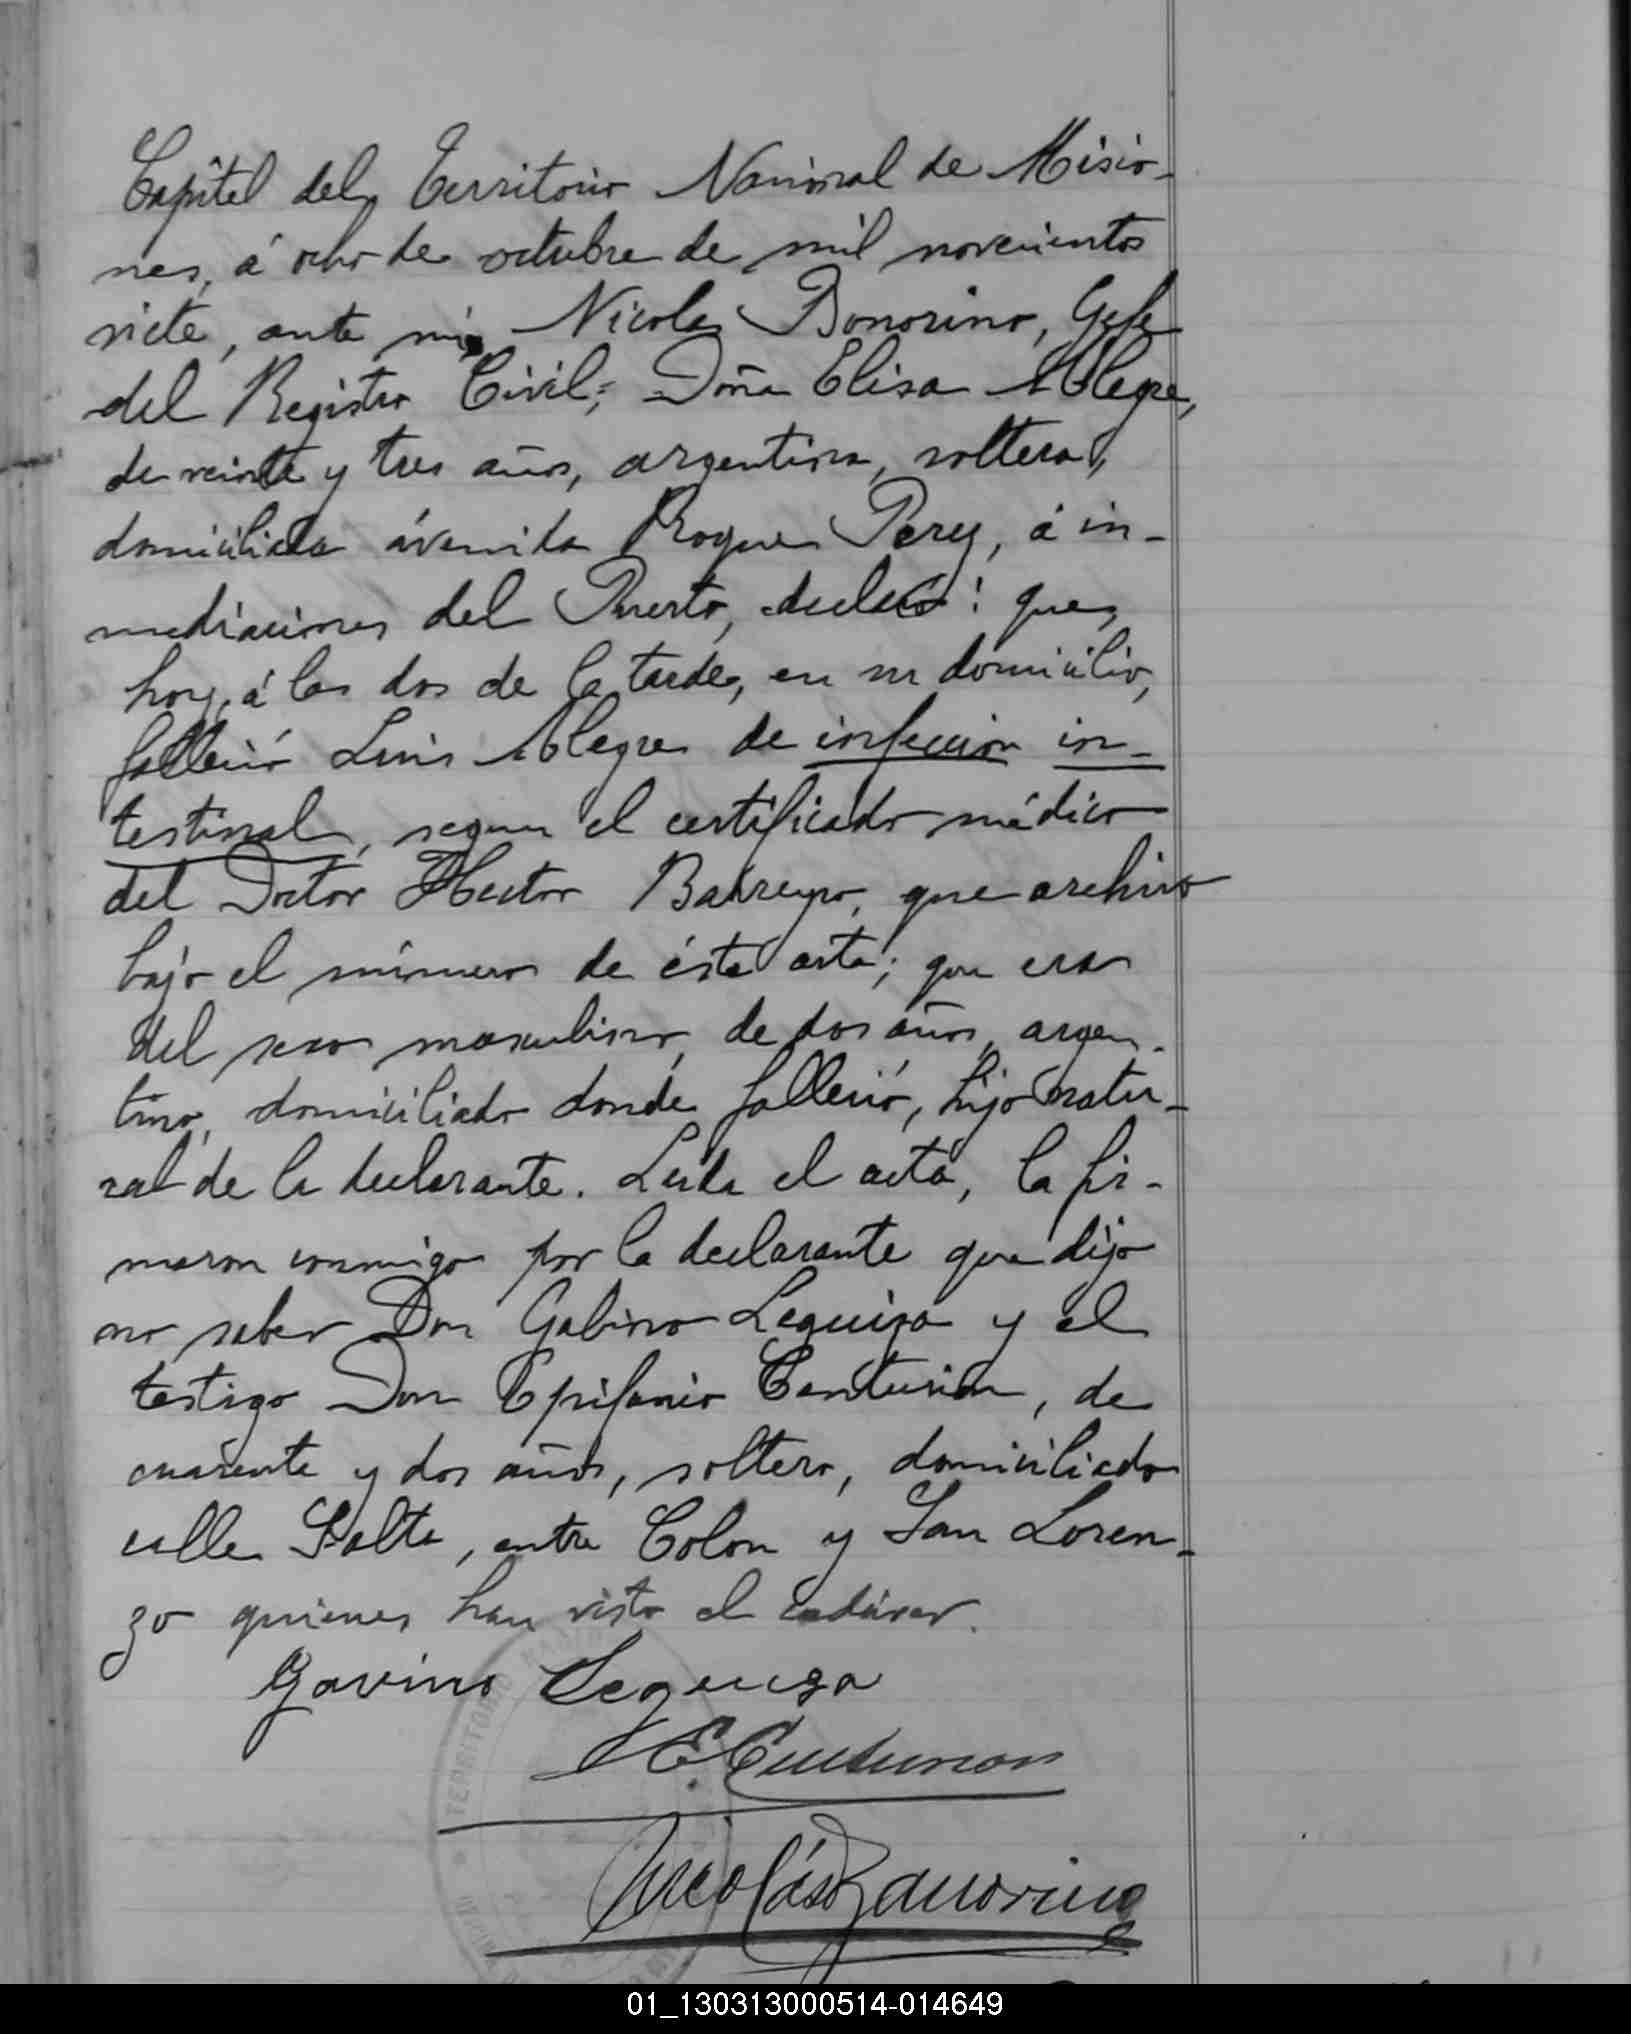 Capital del Territorio Nacional de Misio-
nes, á ocho de octubre de mil novecientos
siete, ante mi, Nicolas Bonorino, Gefe
del Registro Civil; Doña Elisa Alegre,
de veinte y tres años, argentina, soltera,
domiciliada ávenida Roque Perez, á in-
mediaciones del Puerto, declaró: que,
hoy, á las dos de la tarde, en su domicilio,
falleció Luis Alegre de infeccion in-
testinal, segun el certificado médico
del Doctor Hector Barreyro, que archivo
bajo el número de ésta acta; que era
del sexo masculino, de dos años, argen-
tino, domiciliado donde falleció, hijo natu-
ral de la declarante. Leida el acta, la fir-
maron conmigo por la declarante que dijo
no saber Don Gabino Leguiza y el
testigo Don Epifanio Centurion, de
cuarenta y dos años, soltero, domiciliado
calle Salta, entre Colon y San Loren-
zo quienes han visto el cadáver.
Gavino Leguiza
E. Centurion
Nicolás Bonorino
TERRITORIO
01_130313000514-014649